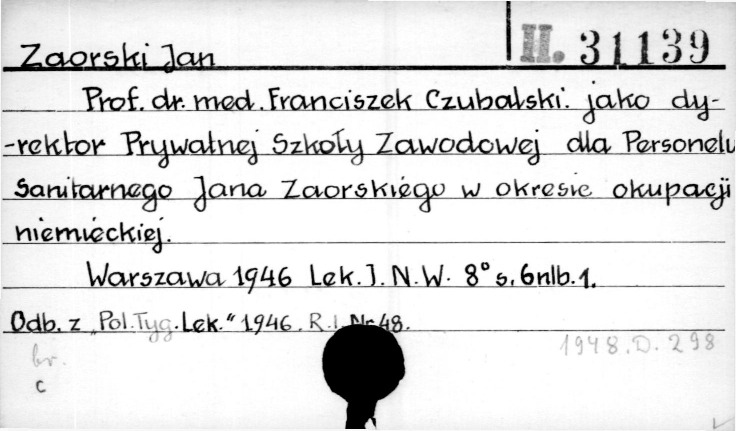 Zaorski Jan II. 31139
Prof. dr. med. Franciszek Czubalski. jako dy-
-rektor Prywatnej Szkoły Zawodowej dla Personelu
Sanitarnego Jana Zaorskiego w okresie okupacji
niemieckiej.
Warszawa 1946 Lek. I. N. W. 8° s. 6 nlb. 1.
Odb. z „Pol. Tyg. Lek.“ 1946. R. I. Nr 48.
br. 1948. D. 298
c